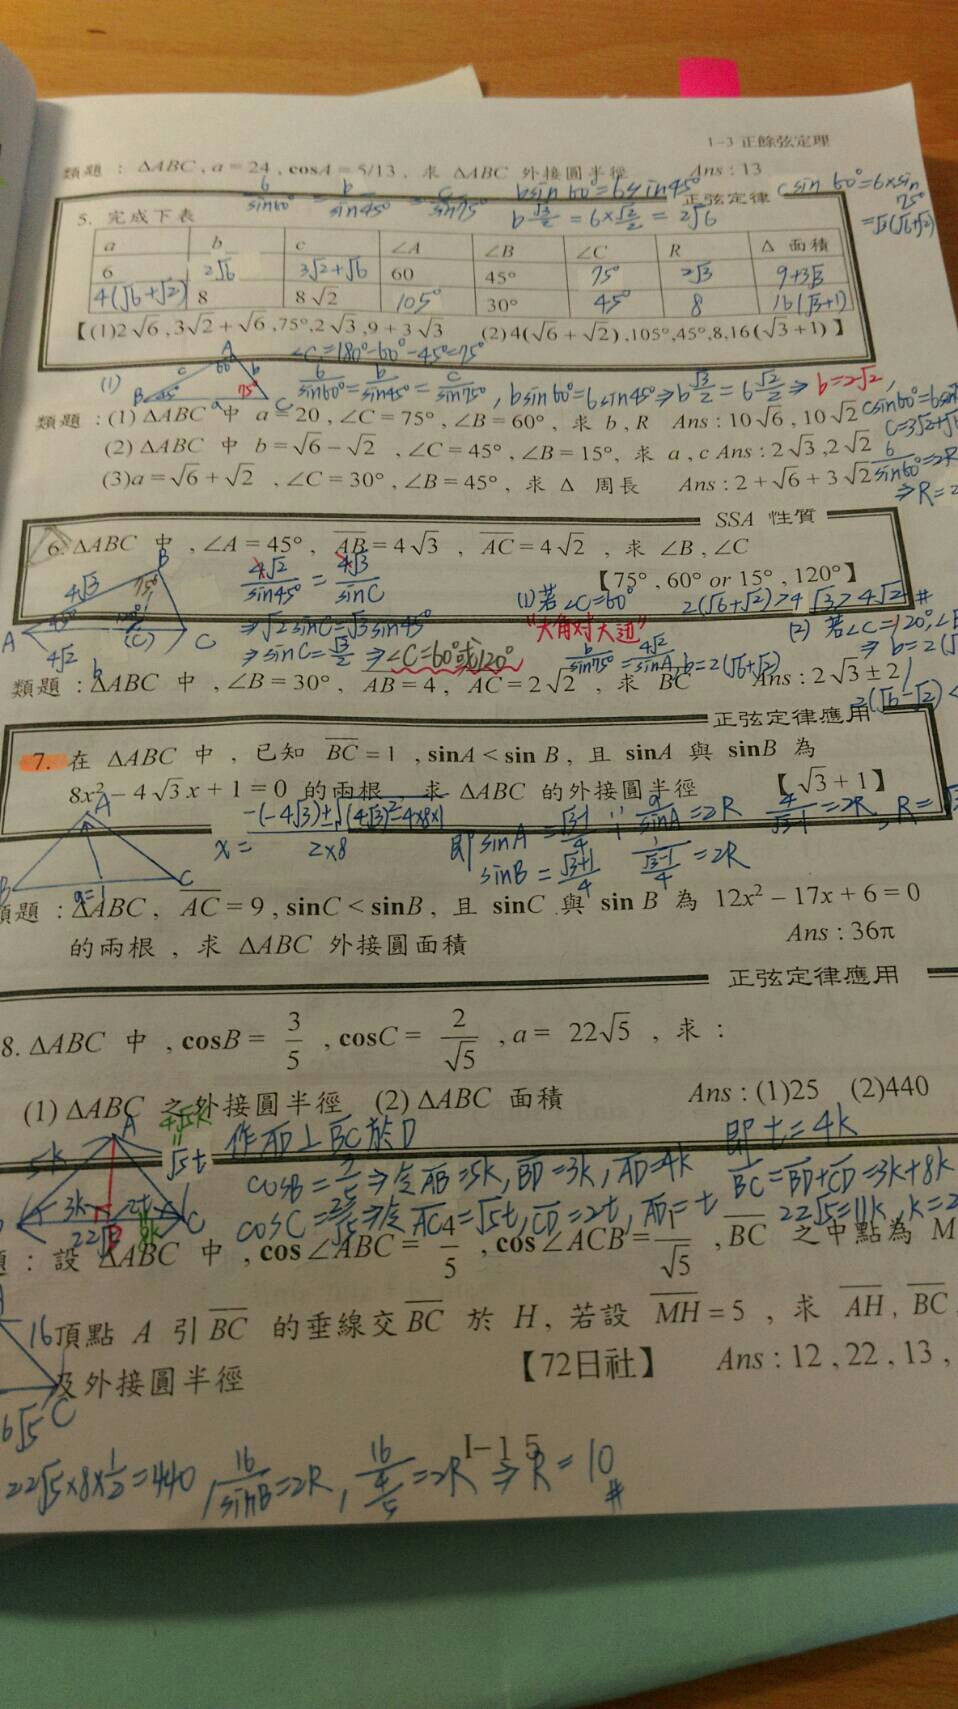 1-3 正餘弦定理
類題：ΔABC，a = 24，cosA = 5/13，求 ΔABC 外接圓半徑 Ans : 13
6/sin60° = b/sin45° = c/sin75°
b sin 60° = 6 sin 45°
b √3/2 = 6 × √2/2 = 2√6
c sin 60° = 6 × sin 75°
= √3(√6+√2)
正弦定律
5. 完成下表
a b c ∠A ∠B ∠C R Δ 面積
6 2√6 3√2+√6 60 45° 75° 2√3 9+3√3
4(√6+√2) 8 8√2 105° 30° 45° 8 16(√3+1)
【(1)2√6 ,3√2 + √6 ,75°,2√3 ,9 + 3√3 (2)4(√6 + √2) ,105°,45°,8,16(√3 + 1) 】
∠C=180°-60°-45°=75°
(1) A B C c b a 60° 45° 75°
6/sin60° = b/sin45° = c/sin75° , b sin60° = 6 sin45° ⇒ b √3/2 = 6 √2/2 ⇒ b=2√2 ,
類題：(1) ΔABC 中 a = 20 , ∠C = 75° , ∠B = 60° , 求 b , R Ans : 10√6 , 10√2
(2) ΔABC 中 b = √6 − √2 , ∠C = 45° , ∠B = 15°, 求 a , c Ans : 2√3 ,2√2
(3)a = √6 + √2 , ∠C = 30° , ∠B = 45° , 求 Δ 周長 Ans : 2 + √6 + 3√2
6/sin60° = 2R
SSA 性質
6. ΔABC 中 , ∠A = 45° , AB = 4√3 , AC = 4√2 , 求 ∠B , ∠C
【75° , 60° or 15° , 120°】
4√2/sin45° = 4√3/sinC
⇒ √2 sinC = √3 sin45°
⇒ sinC = √3/2 ⇒ ∠C=60°或120°
A B C (C) 4√3 4√2 45° 75° 120° b
(1) 若 ∠C=60°
2(√6+√2)>4√3>4√2 #
"大角對大邊"
b/sin75° = 4√2/sinA , b=2(√6+√2)
(2) 若∠C=120°,
類題：ΔABC 中 , ∠B = 30° , AB = 4 , AC = 2√2 , 求 BC Ans : 2√3 ± 2
正弦定律應用
7. 在 ΔABC 中 , 已知 BC = 1 , sinA < sin B , 且 sinA 與 sinB 為
8x² − 4√3 x + 1 = 0 的兩根 , 求 ΔABC 的外接圓半徑 【√3 + 1】
A B C a=1
x = −(−4√3)±√(4√3)²−4×8×1 / 2×8
即 sinA = √3−1/4
sinB = √3+1/4
∵ a/sinA = 2R
1/(√3−1/4) = 2R
4/√3−1 = 2R , R =
類題 : ΔABC , AC = 9 , sinC < sinB , 且 sinC 與 sin B 為 12x² − 17x + 6 = 0
的兩根 , 求 ΔABC 外接圓面積 Ans : 36π
正弦定律應用
8. ΔABC 中 , cosB = 3/5 , cosC = 2/√5 , a = 22√5 , 求 :
(1) ΔABC 之外接圓半徑 (2) ΔABC 面積 Ans : (1)25 (2)440
作AD⊥BC於D
即 t=4k
A C 5k 4√5k √5t 3k 2t 8k 22√5
⇒令AB=5k, BD=3k, AD=4k
⇒令AC=√5t, CD=2t, AD=t
BC=BD+CD=3k+8k
22√5=11k,
題 : 設 ΔABC 中 , cos∠ABC = 4/5 , cos∠ACB = 1/√5 , BC 之中點為 M
頂點 A 引 BC 的垂線交 BC 於 H , 若設 MH = 5 , 求 AH , BC
16
及外接圓半徑 【72日社】 Ans : 12 , 22 , 13 ,
C
I-1 5
22√5×8×1/2=440
16/sinB = 2R , 16/(4/5) = 2R ⇒ R = 10 #